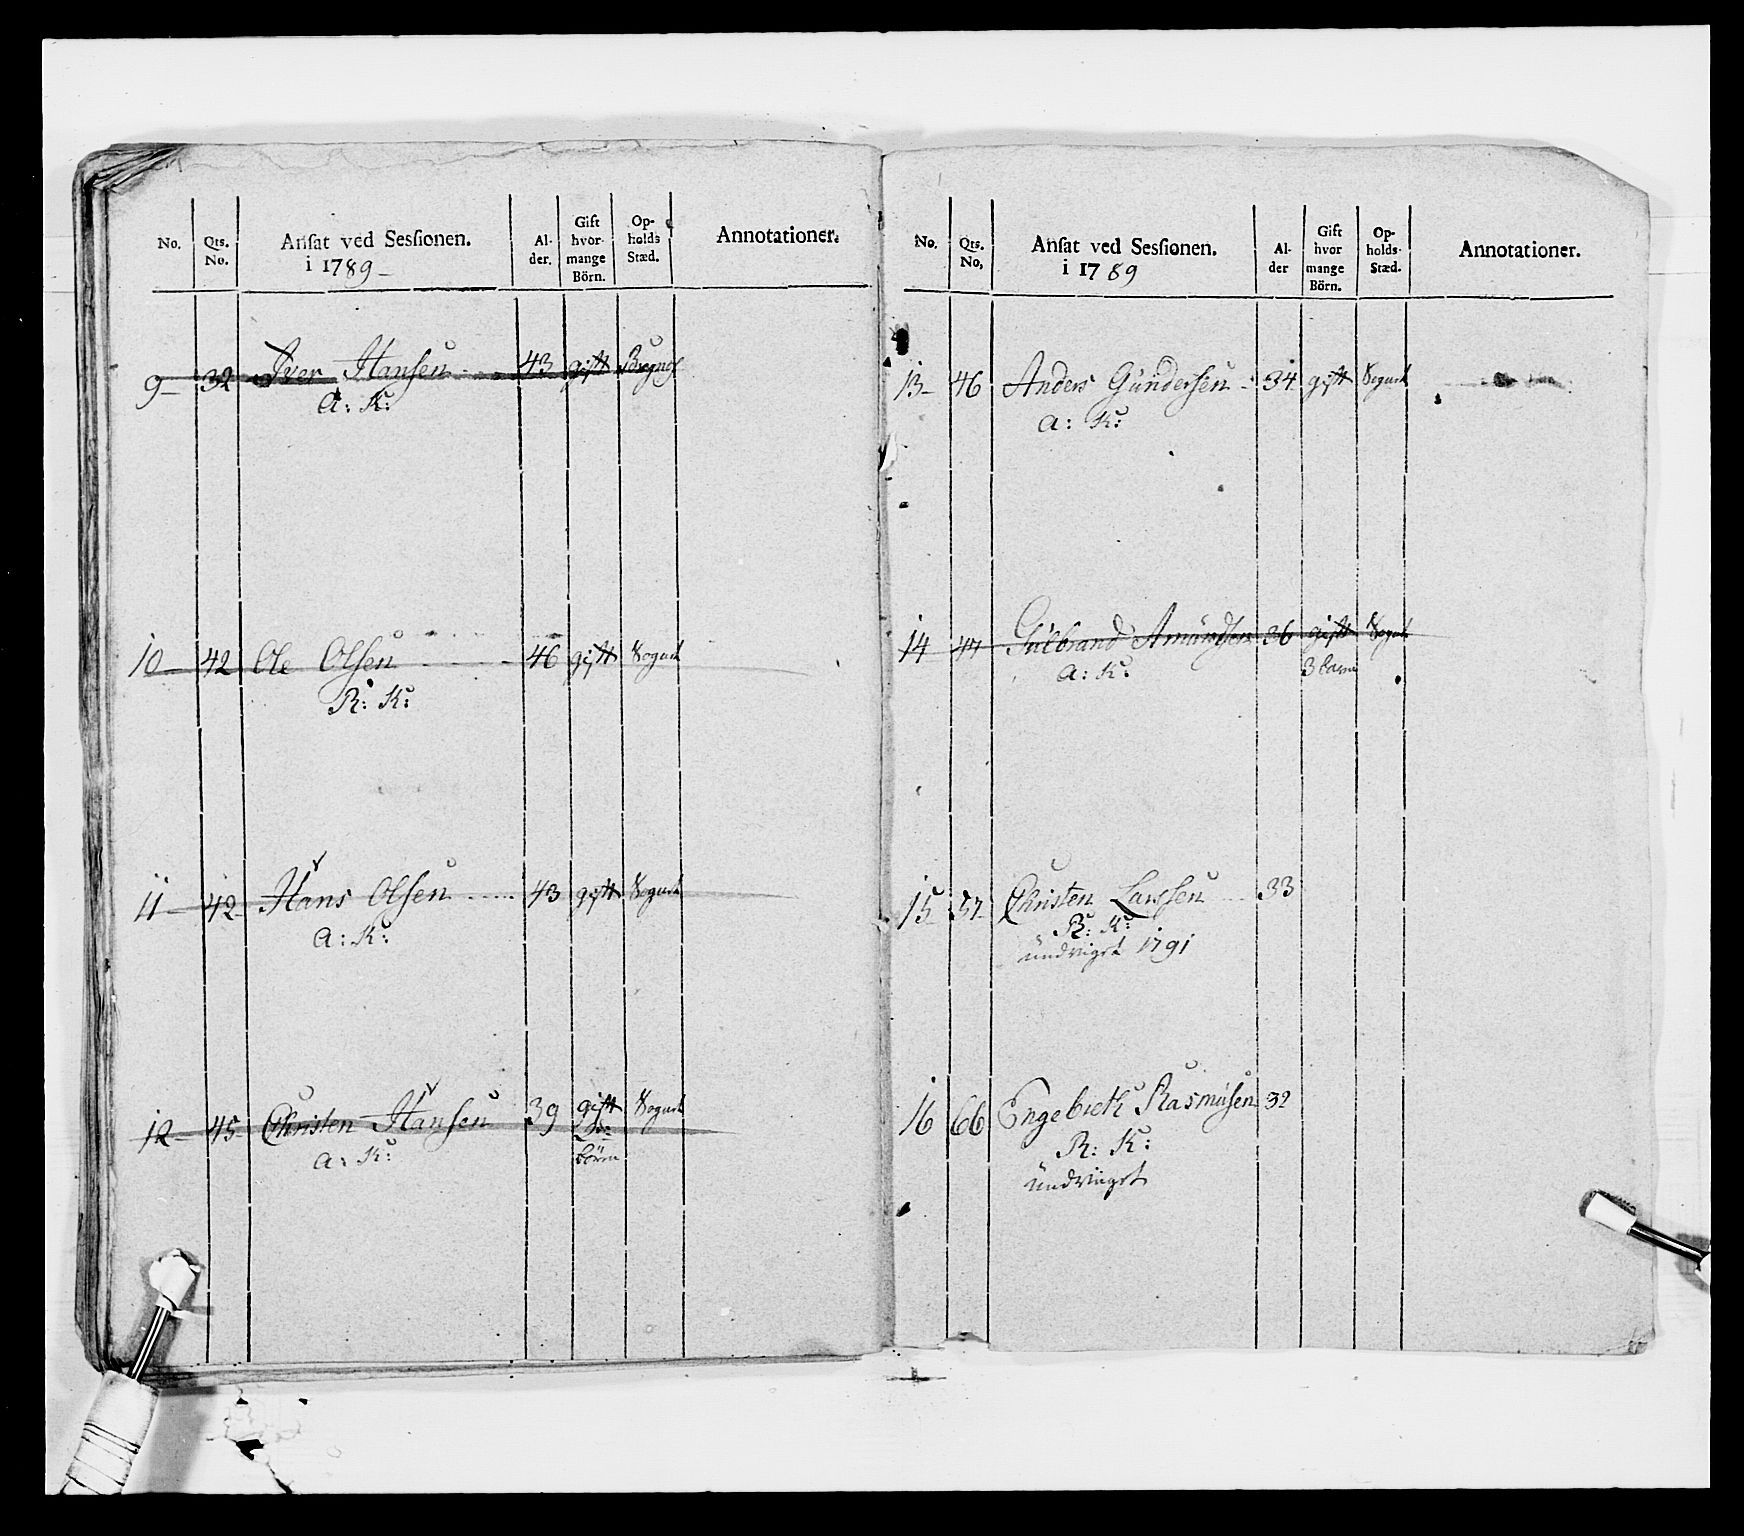 No. Qts. No. Ansat ved Sessionen. i 1789 Al- der. Gift hvor- mange Börn. Op- holds Stæd. Annotationer.
9 32 Iver Hansen 43 gift
A: K:
10 42 Ole Olsen 46 gift
R: K:
11 42 Hans Olsen 43 gift
A: K:
12 45 Christen Hansen 39 gift
A: K: börn
No. Qts. No, Ansat ved Sessionen. i 1789 Al- der Gift hvor mange Börn. Op- holds- Stæd. Annotationer.
13 46 Anders Gundersen 34 gift
A: K:
14 Gulbrand Amundsen 36 gift
A: K: 3 barn
15 57 Christen Larssen 33
R: K:
undviget 1791
16 66 Engebreth Rasmusen 32
R: K:
undviiget